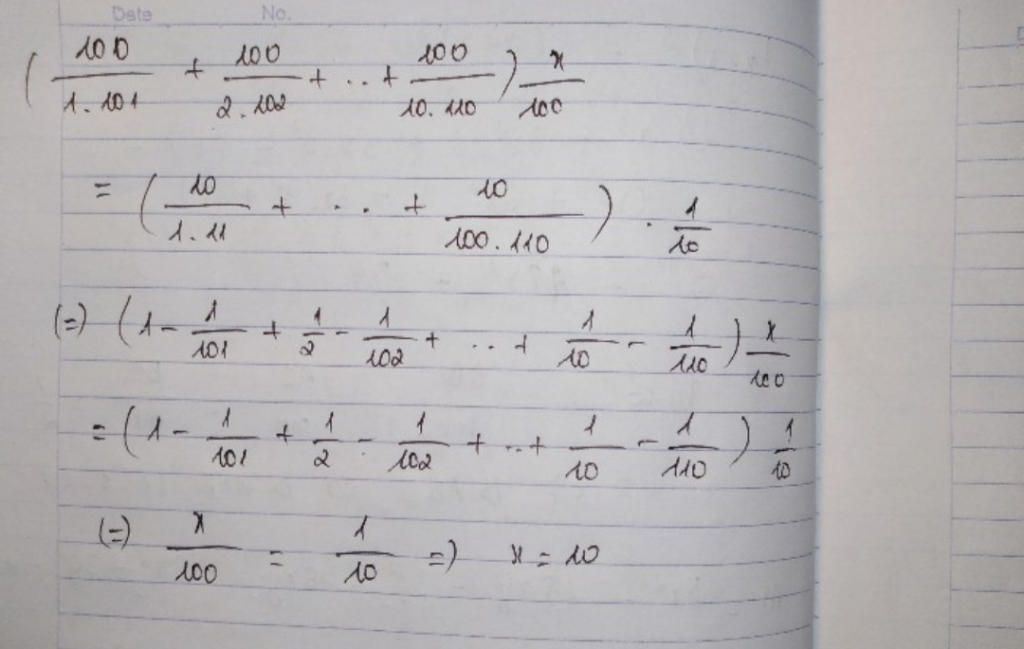 Date No.
( 100/1.101 + 100/2.102 + .. + 100/10.110 ) x/100
= ( 10/1.11 + .. + 10/100.110 ) . 1/10
(=) ( 1 - 1/101 + 1/2 - 1/102 + .. + 1/10 - 1/110 ) x/100
= ( 1 - 1/101 + 1/2 - 1/102 + .. + 1/10 - 1/110 ) 1/10
(=) x/100 = 1/10 =) x = 10